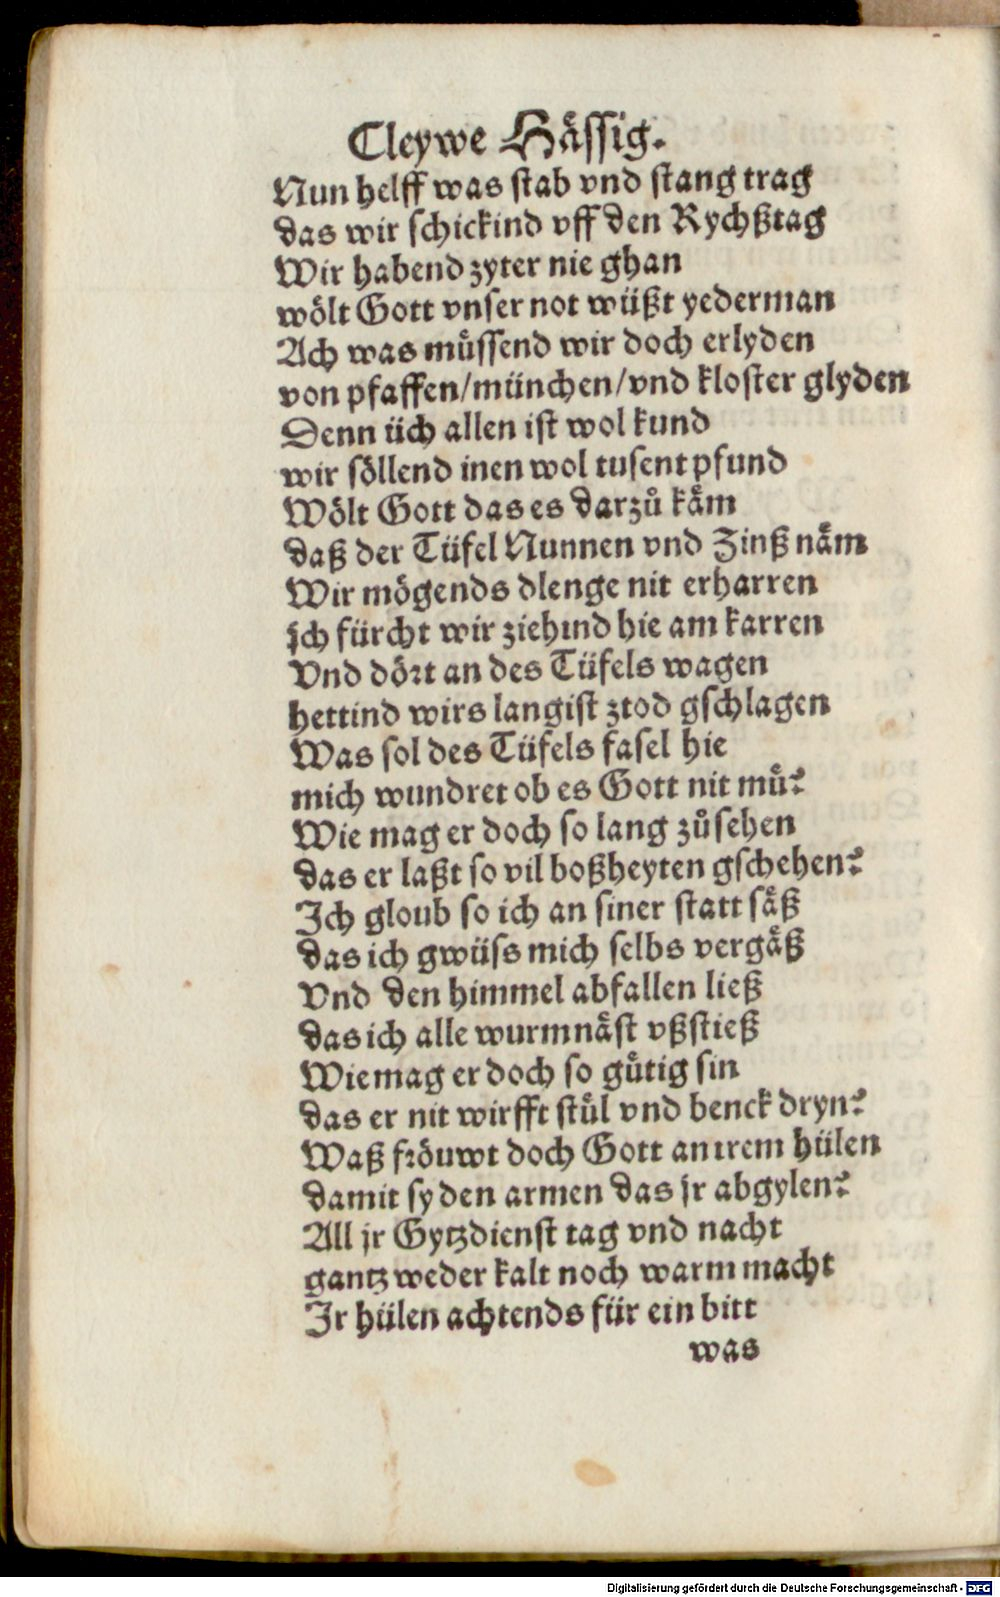 Cleywe Hässig.
Nun helff was stab vnd stang trag
das wir schickind vff den Rychßtag
Wir habend zyter nie ghan
wölt Gott vnser not wüßt yederman
Ach was müssend wir doch erlyden
von pfaffen/münchen/vnd kloster glyden
Denn üch allen ist wol kund
wir söllend inen wol tusent pfund
Wölt Gott das es darzů käm
daß der Tüfel Nunnen vnd Zinß näm
Wir mögends dlenge nit erharren
ich fürcht wir ziehind hie am karren
Vnd dört an des Tüfels wagen
hettind wirs langist ztod gschlagen
Was sol des Tüfels fasel hie
mich wundret ob es Gott nit mü?
Wie mag er doch so lang zůsehen
das er laßt so vil boßheyten gschehen?
Ich gloub so ich an siner statt säß
das ich gwüss mich selbs vergäß
Vnd den himmel abfallen ließ
das ich alle wurmnäst vßstieß
Wie mag er doch so gütig sin
das er nit wirfft stül vnd benck dryn?
Waß fröuwt doch Gott an irem hülen
damit sy den armen das jr abgylen?
All jr Gytzdienst tag vnd nacht
gantz weder kalt noch warm macht
Ir hülen achtends für ein bitt
was
Digitalisierung gefördert durch die Deutsche Forschungsgemeinschaft - DFG